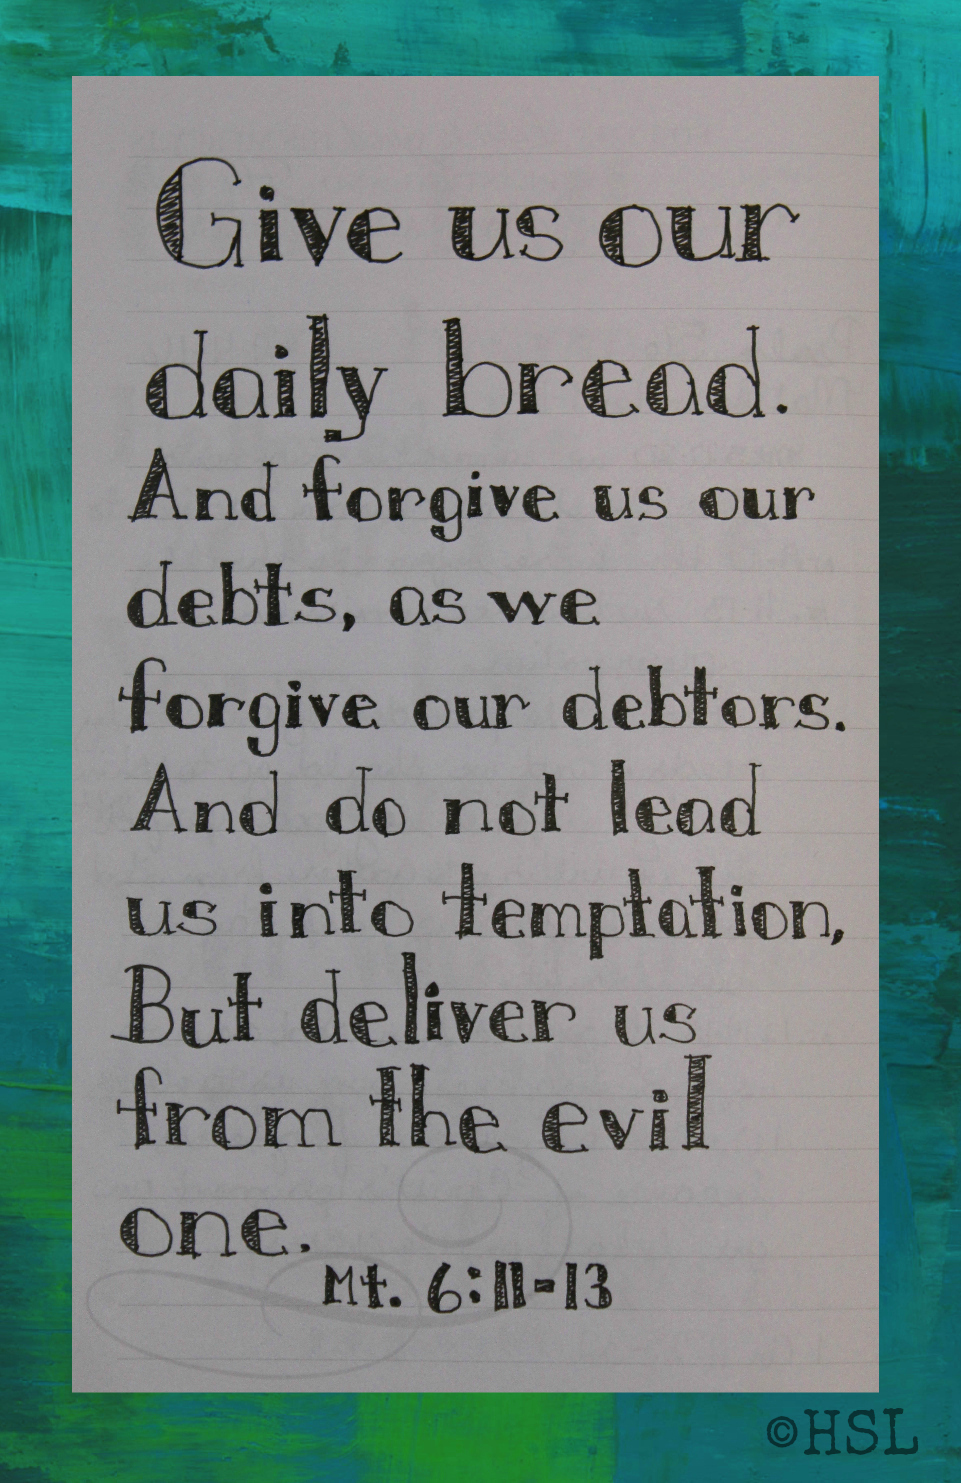 Give us our
daily bread.
And forgive us our
debts, as we
forgive our debtors.
And do not lead
us into temptation,
But deliver us
from the evil
one.
Mt. 6:11-13
©HSL